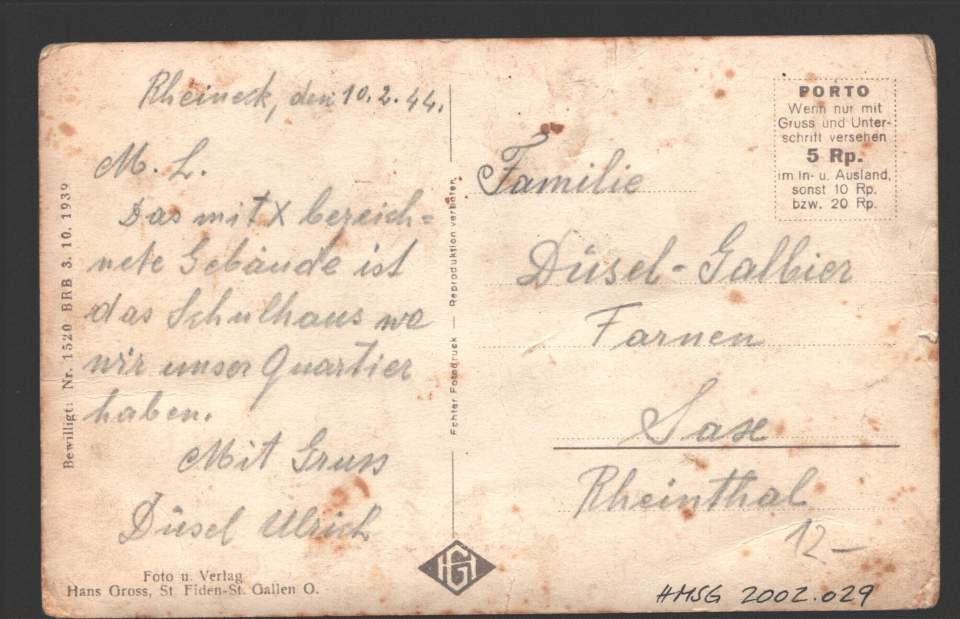 Rheineck, den 10.2.44.
M. L.
Das mit X bezeich=
nete Gebäude ist
das Schulhaus wo
wir unser Quartier
haben.
Mit Gruss
Düsel Ulrich
Foto u. Verlag
Hans Gross, St. Fiden-St. Gallen O.
Bewilligt: Nr. 1520 BRB 3. 10. 1939
Echter Fotodruck — Reproduktion verboten
HG
PORTO
Wenn nur mit
Gruss und Unter-
schrift versehen
5 Rp.
im In- u. Ausland,
sonst 10 Rp.
bzw. 20 Rp.
Familie
Düsel-Galbier
Farnen
Sax
Rheinthal
12—
HMSG 2002.029